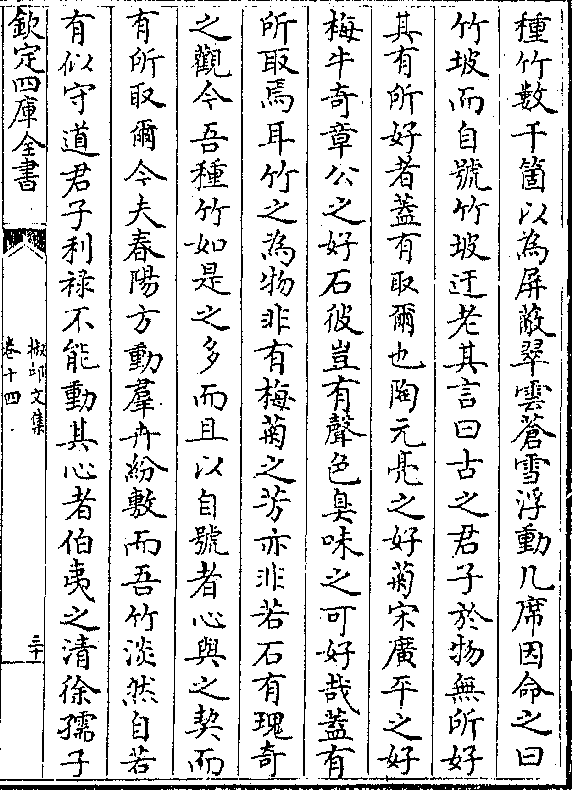 種竹數千箇以為屏蔽翠雲蒼雪浮動几席因命之曰
竹坡而自號竹坡迂老其言曰古之君子於物無所好
其有所好者蓋有取爾也陶元亮之好菊宋廣平之好
梅牛奇章公之好石彼豈有聲色臭味之可好哉蓋有
所取焉耳竹之為物非有梅菊之芳亦非若石有瑰奇
之觀今吾種竹如是之多而且以自號者心與之契而
有所取爾今夫春陽方動羣卉紛敷而吾竹淡然自若
有似守道君子利祿不能動其心者伯夷之清徐孺子
欽定四庫全書
椒邱文集
卷十四
三十